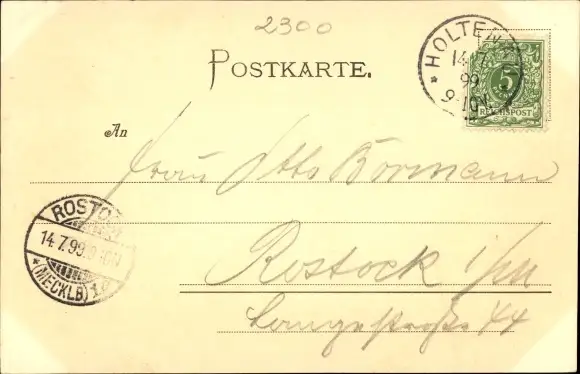 2300
HOLTENAU
14/7
99
9-10V.
5
REICHSPOST
POSTKARTE.
An
Frau Otto Bormann
ROSTOCK
14.7.99.
(MECKLB)
Rostock i/M
Langestraße 44